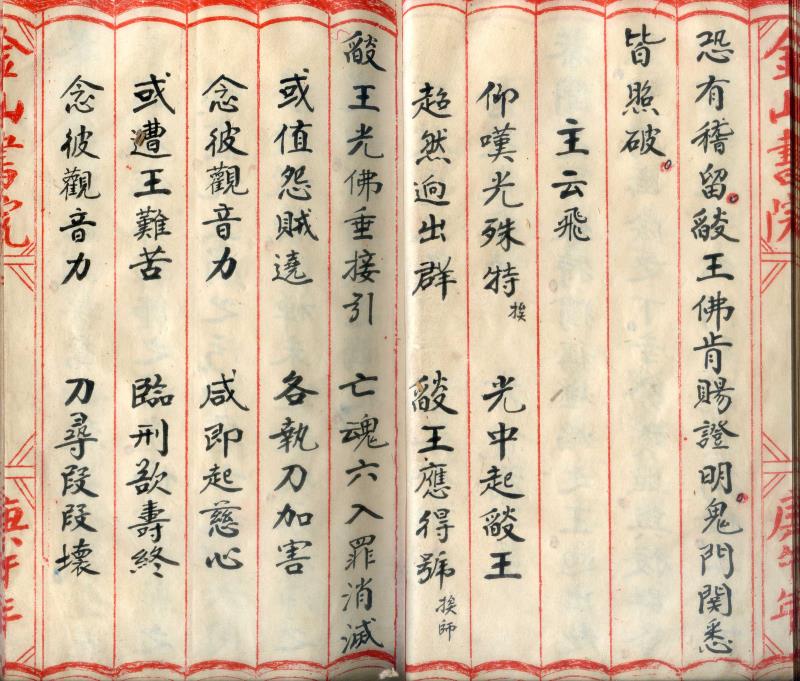 金山書院
庚午年
恐有稽留燄王佛肯賜證明鬼門関悉
皆照破
主云飛
仰嘆光殊特挨 光中起燄王
超然逈出群 燄王應得號挨師
燄王光佛垂接引 亡魂六入罪消滅
或值怨賊遶 各執刀加害
念彼觀音力 咸即起慈心
或遭王難苦 臨刑欲壽終
念彼觀音力 刀尋段段壞
金山書院
庚午年